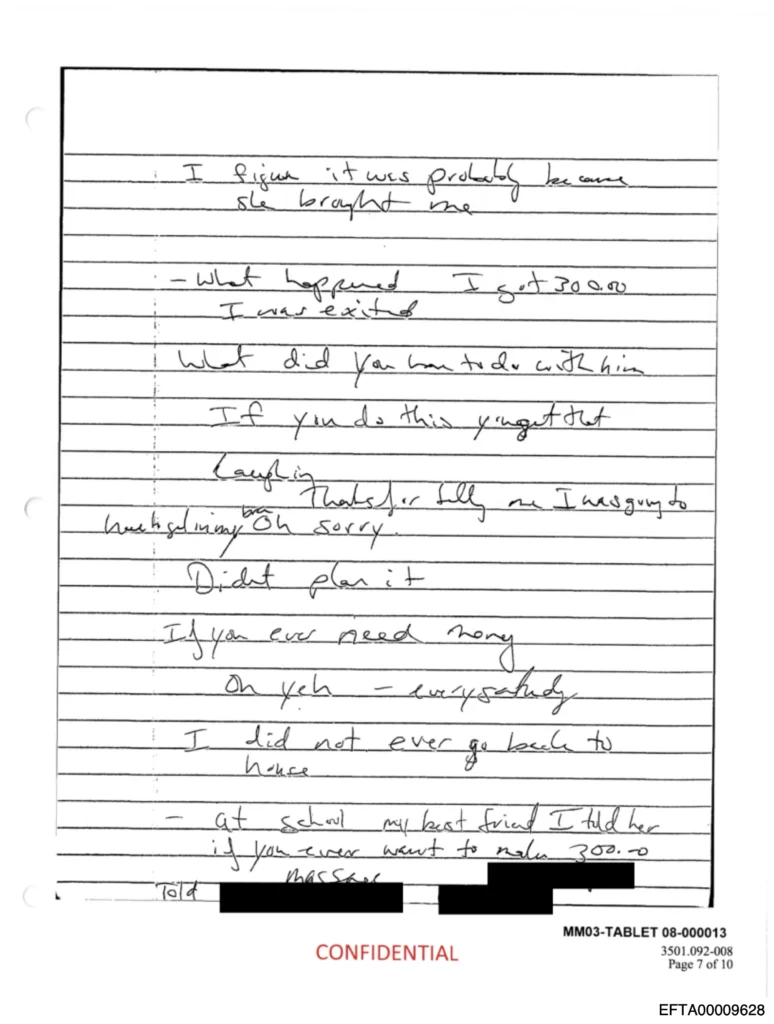 I figure it was probably because
she brought me
- What happened I got 300.00
I was exited
What did you have to do with him
If you do this you get that
Laughing
Thanks for telly me I was going to
have to gel in my bra Oh sorry.
Didnt plan it
If you ever need money
Oh yeh - every saturdy
I did not ever go back to
house
- at school my best friend I told her
if you ever want to make 300.00
massage
Told
MM03-TABLET 08-000013
CONFIDENTIAL
3501.092-008
Page 7 of 10
EFTA00009628